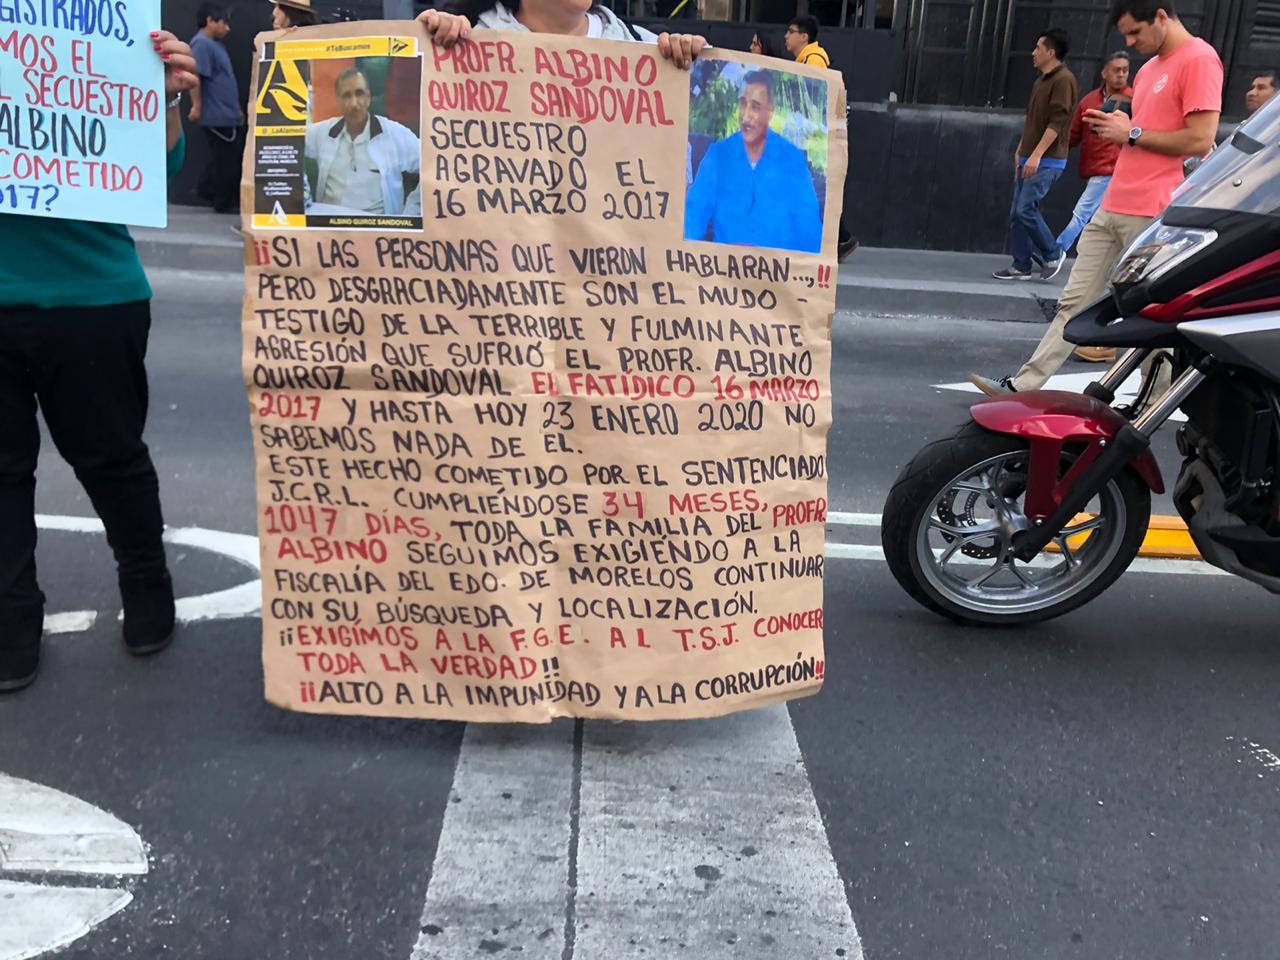 GISTRADOS,
MOS EL
L SECUESTRO
ALBINO
COMETIDO
017?
#TeBuscamos
@_LaAlameda
ALBINO QUIROZ SANDOVAL
PROFR. ALBINO
QUIROZ SANDOVAL
SECUESTRO
AGRAVADO EL
16 MARZO 2017
¡¡SI LAS PERSONAS QUE VIERON HABLARAN...,!!
PERO DESGRACIADAMENTE SON EL MUDO -
TESTIGO DE LA TERRIBLE Y FULMINANTE
AGRESIÓN QUE SUFRIÓ EL PROFR. ALBINO
QUIROZ SANDOVAL EL FATÍDICO 16 MARZO
2017 Y HASTA HOY 23 ENERO 2020 NO
SABEMOS NADA DE EL.
ESTE HECHO COMETIDO POR EL SENTENCIADO
J.C.R.L. CUMPLIÉNDOSE 34 MESES,
1047 DÍAS, TODA LA FAMILIA DEL PROFR.
ALBINO SEGUIMOS EXIGIÉNDO A LA
FISCALÍA DEL EDO. DE MORELOS CONTINUAR
CON SU BÚSQUEDA Y LOCALIZACIÓN.
¡¡EXIGÍMOS A LA F.G.E. AL T.S.J. CONOCER
TODA LA VERDAD!!
¡¡ALTO A LA IMPUNIDAD Y A LA CORRUPCIÓN!!